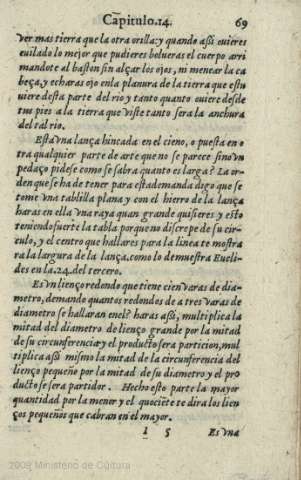 Capitulo.14. 69
ver mas tierra que la otra orilla: y quando assi uieres
euilado lo mejor que pudieres bolueras el cuerpo arri
mandote al baston sin alçar los ojos, ni menear la ca
beça, y echaras ojo enla planura de la tierra que estu
uiere desta parte del rio y tanto quanto ouiere desde
tus pies a la tierra que viste tanto sera la anchura
del tal rio.
Esta vna lança hincada en el cieno, o puesta en o
tra qualquier parte de arte que no se parece sino vn
pedaço pidese como se sabra quanto es larga? La or-
den que se ha de tener para esta demanda digo que se
tome vna tablilla plana y con el hierro de la lança
haras en ella vna raya quan grande quisieres y esto
teniendo fuerte la tabla porque no discrepe de su cir-
culo, y el centro que hallares para la linea te mostra
ra la largura de la lança, como lo demuestra Eucli-
des en la.24.del tercero.
Es vn lienço redendo que tiene cien varas de dia-
metro, demando quantos redondos de a tres varas de
diametro se hallaran enel? haras assi, multiplica la
mitad del diametro de lienço grande por la mitad
de su circunferencia: y el producto sera particion, mul
tiplica assi mismo la mitad de la circunferencia del
lienço pequeño por la mitad de su diametro y el pro
ducto se sera partidor. Hecho esto parte la mayor
quantidad por la menor y el quociẽte te dira los lien
ços pequeños que cabran en el mayor.
I 5 Es vna
2009 Ministerio de Cultura